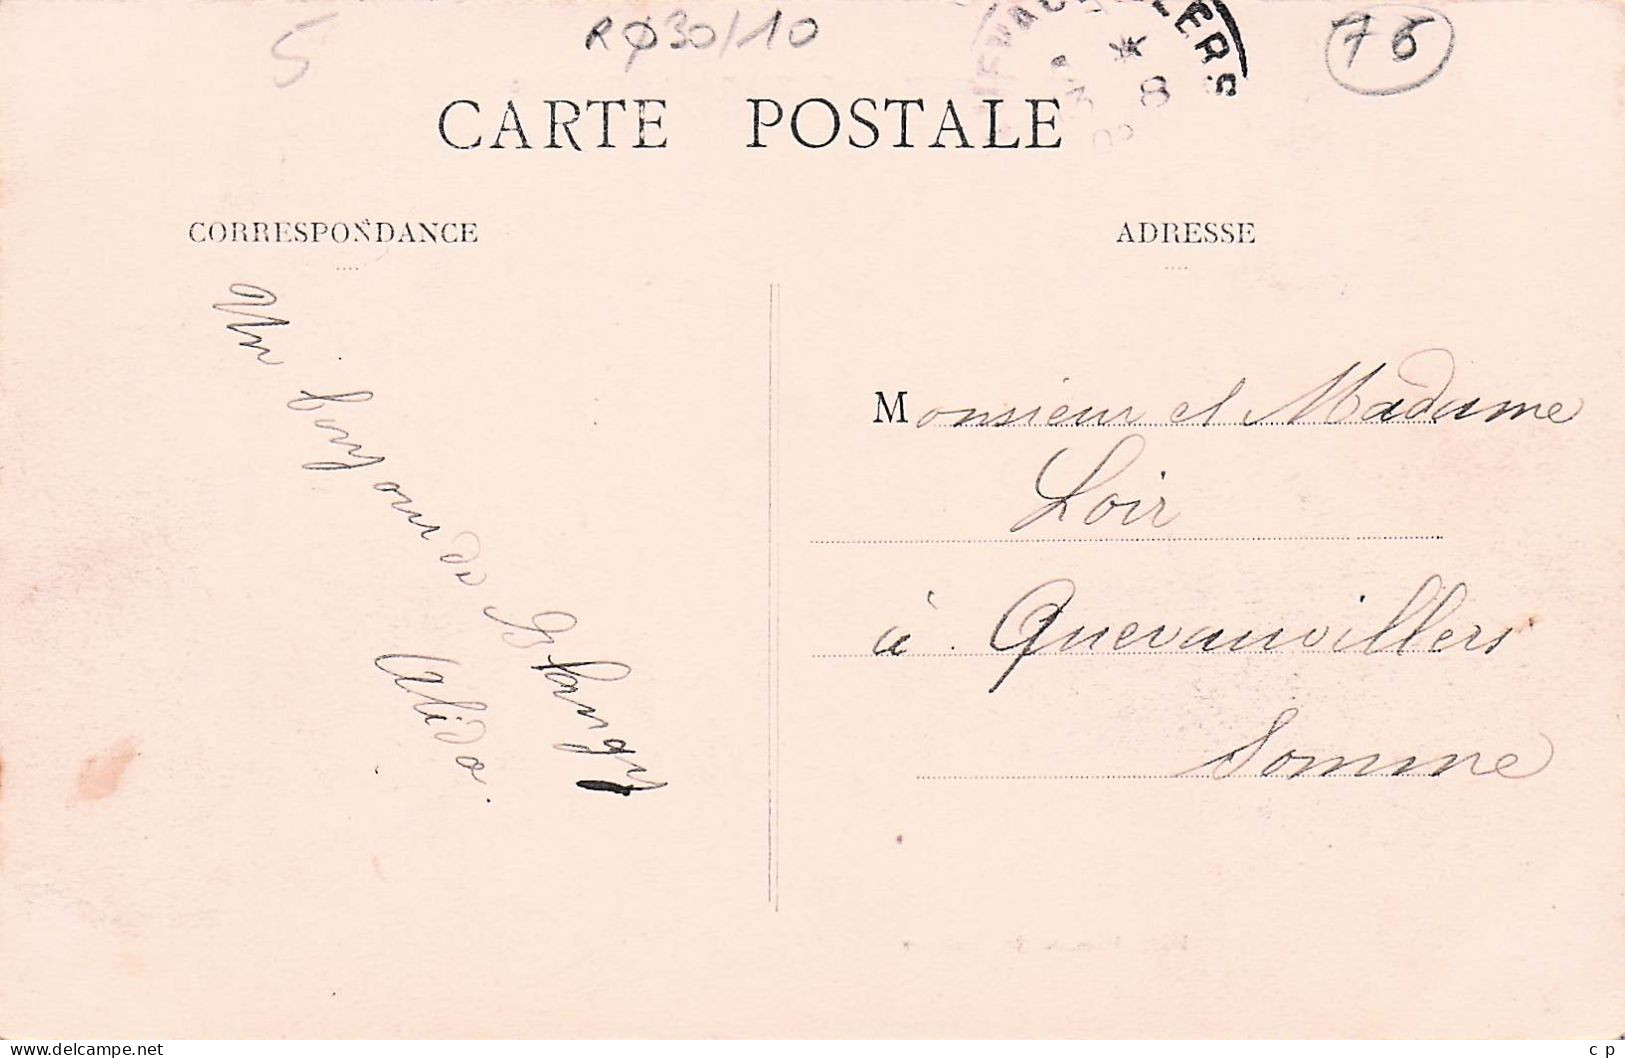 5
RØ30/10
76
CARTE POSTALE
CORRESPONDANCE
ADRESSE
Un
bonjour de
Blangy
Alida.
Monsieur et Madame
Loir
à Quevauvillers
Somme
www.delcampe.net
c p